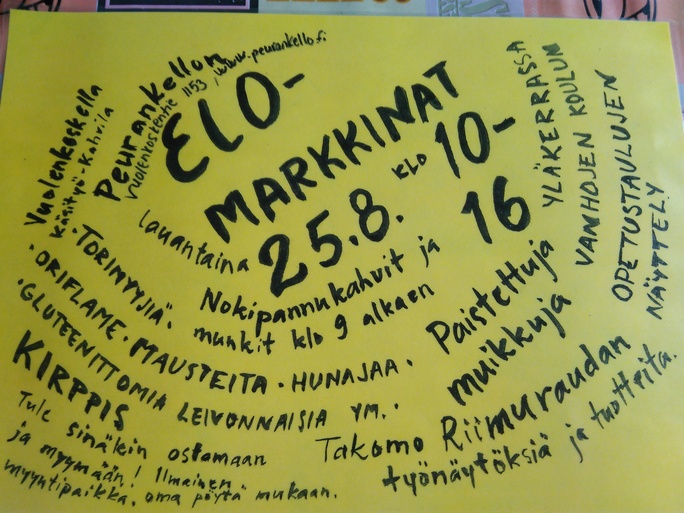 Vuolenkoskella
Käsityö-Kahvila
Peurankellon
Vuolenkoskentie 1153, www.peurankello.fi
ELO-
MARKKINAT
lauantaina 25.8. KLO 10-
16
Nokipannukahvit ja
munkit klo 9 alkaen
YLÄKERRASSA
VANHOJEN KOULUN
OPETUSTAULUJEN
NÄYTTELY
Paistettuja
muikkuja
·TORINYYJIÄ·
·ORIFLAME·MAUSTEITA·HUNAJAA·
·GLUTEENITTOMIA LEIVONNAISIA YM.·
KIRPPIS
Tule sinäkin ostamaan
ja myymään! Ilmainen
myyntipaikka, oma pöytä mukaan.
Takomo Riimuraudan
työnäytöksiä ja tuotteita.